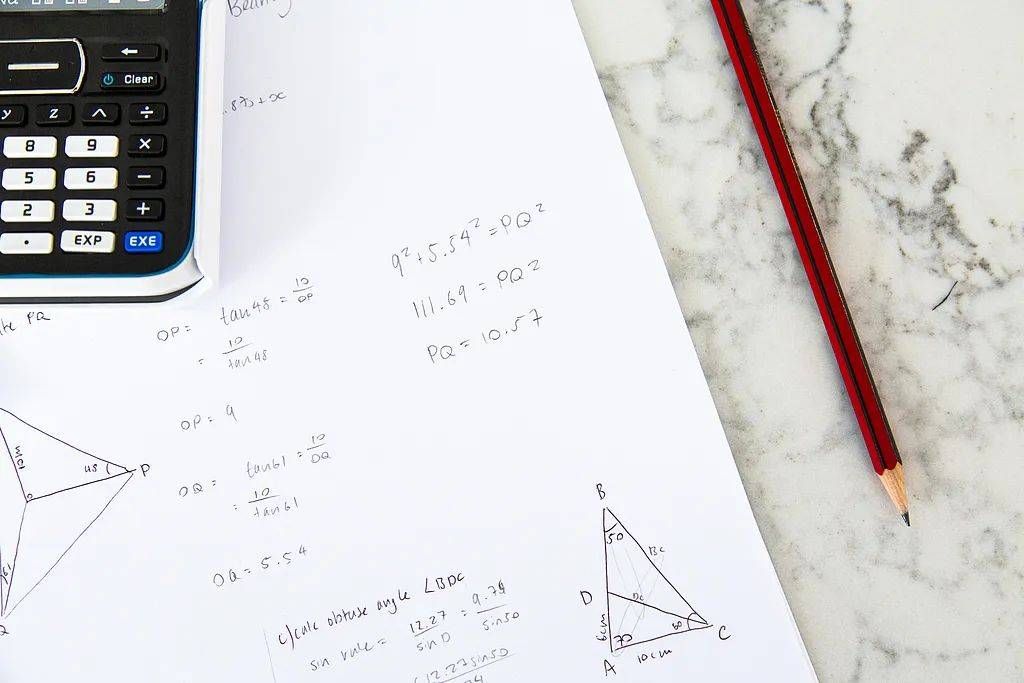 Clear
y z ^ ÷
8 9 ×
5 6 −
2 3 +
. EXP EXE
.87+x
PQ
OP = tan48 = 10/OP
= 10/tan48
OP = 9
OQ = tan61 = 10/OQ
= 10/tan61
OQ = 5.54
9² + 5.54² = PQ²
111.69 = PQ²
PQ = 10.57
10m
48
P
O
61
Q
c) calc obtuse angle ∠BDC
sin rule = 12.27/sin D = 9.74/sin50
12.27sin50
B
50
BC
D
DC
6cm
70
60
C
A
10cm